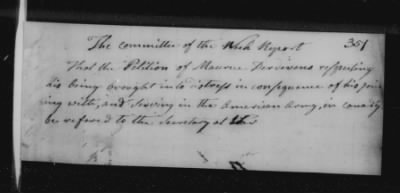 The committee of the Week Report 351
That the Petition of Maurice respecting
his being brought into distress in consequence of his join
ing with, and serving in the American Army, in canada
be refered to the Secretary at